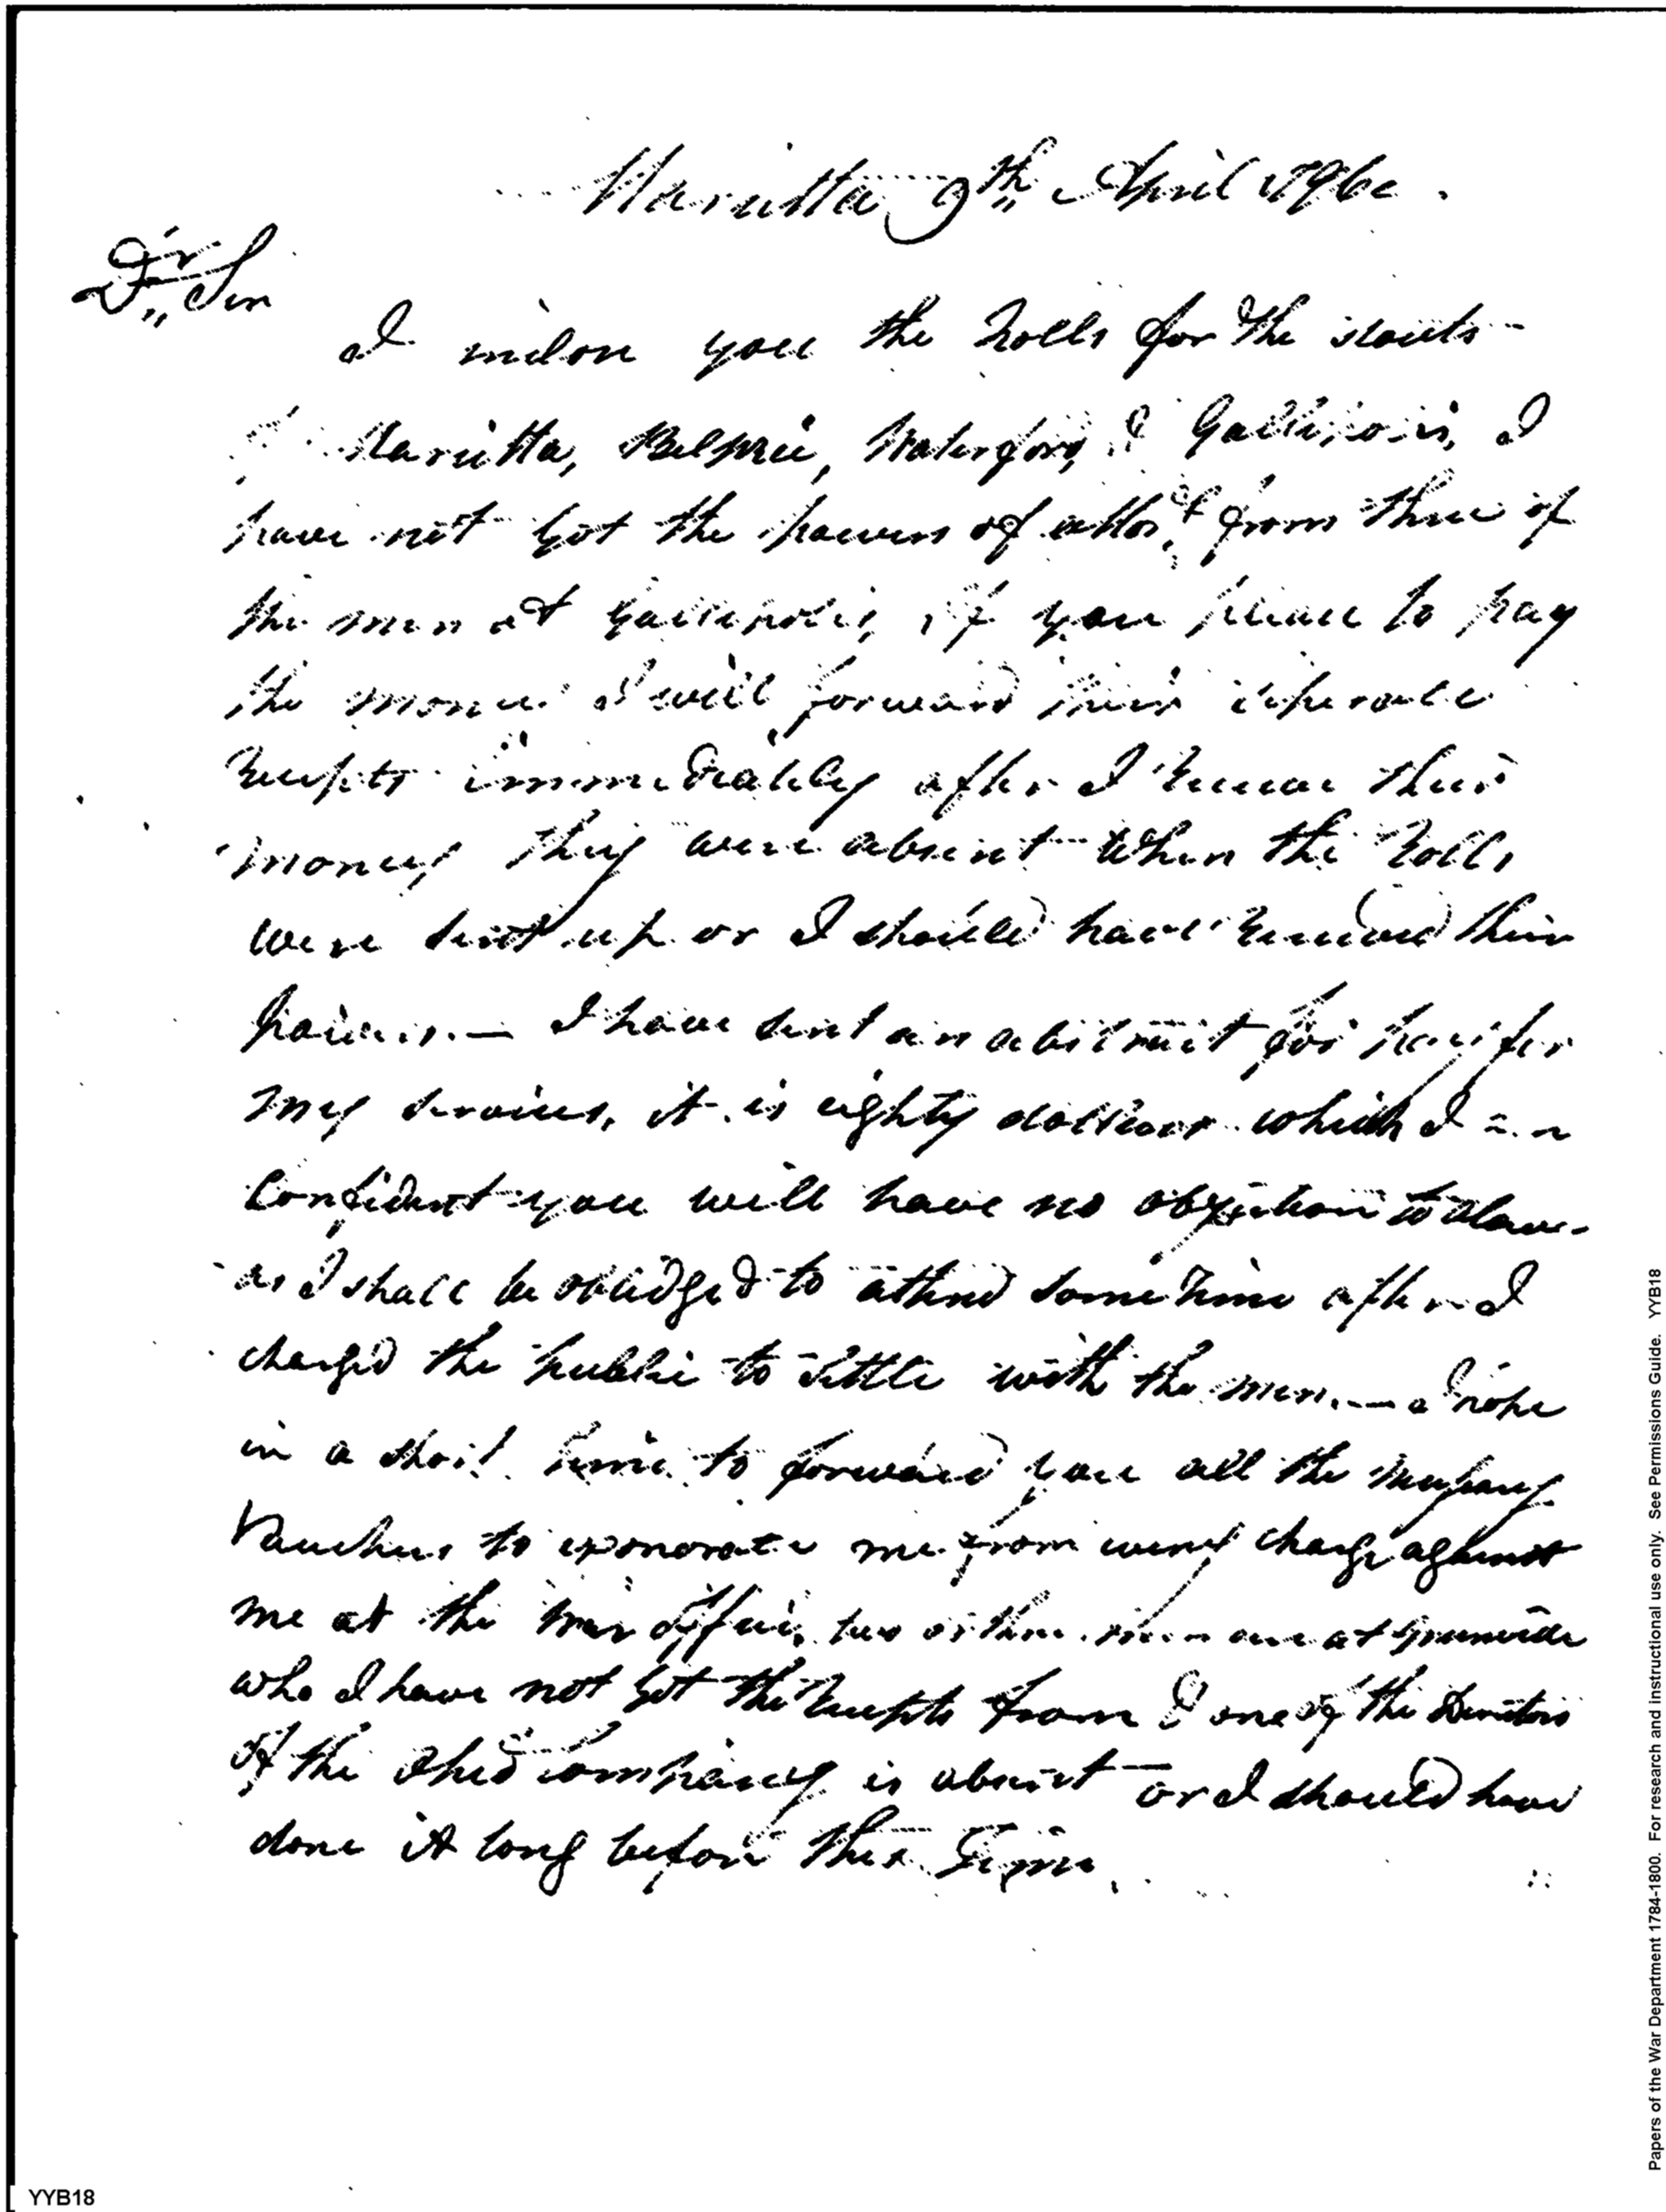 Marietta 9th April 1796
Dr Sir
I inclose you the Rolls for the scouts
Marietta, Belprie, Waterford, & Gallipolis, I
have not got the powers of attoy from three of
the men at Gallipolis, if you please to pay
the money I will forward their seperate
Receipts immediately after I Receive their
money they were absent when the Rolls
were sent up or I should have Received their
powers. — I have sent an abstract for pay for
my services, it is eighty dollars which I am
Confident you will have no objection to alow
as I shall be oblidged to attend some time after I
charged the public to settle with the men. — I hope
in a short time to forward you all the necessary
Vouchers to exonorate me from every charge against
me at the War Office, two or three men are at Greenville
who I have not got the Receipts from & one of the Directors
of the Ohio Company is absent — or I should have
done it long before this Time.
Papers of the War Department 1784-1800. For research and instructional use only. See Permissions Guide. YYB18
YYB18